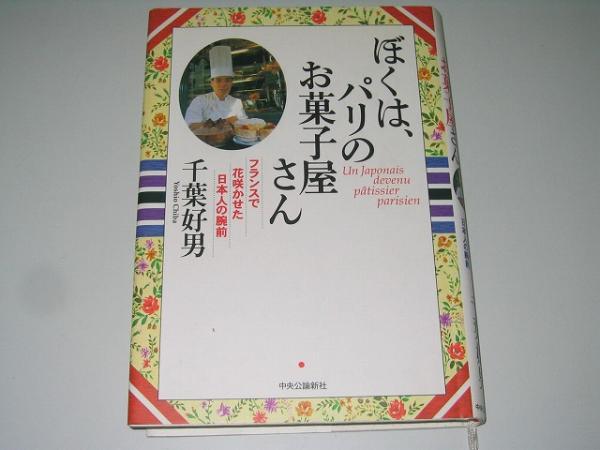 ぼくは、
パリの
お菓子屋
さん
Un Japonais
devenu
pâtissier
parisien
フランスで
花咲かせた
日本人の腕前
千葉好男
Yoshio Chiba
中央公論新社